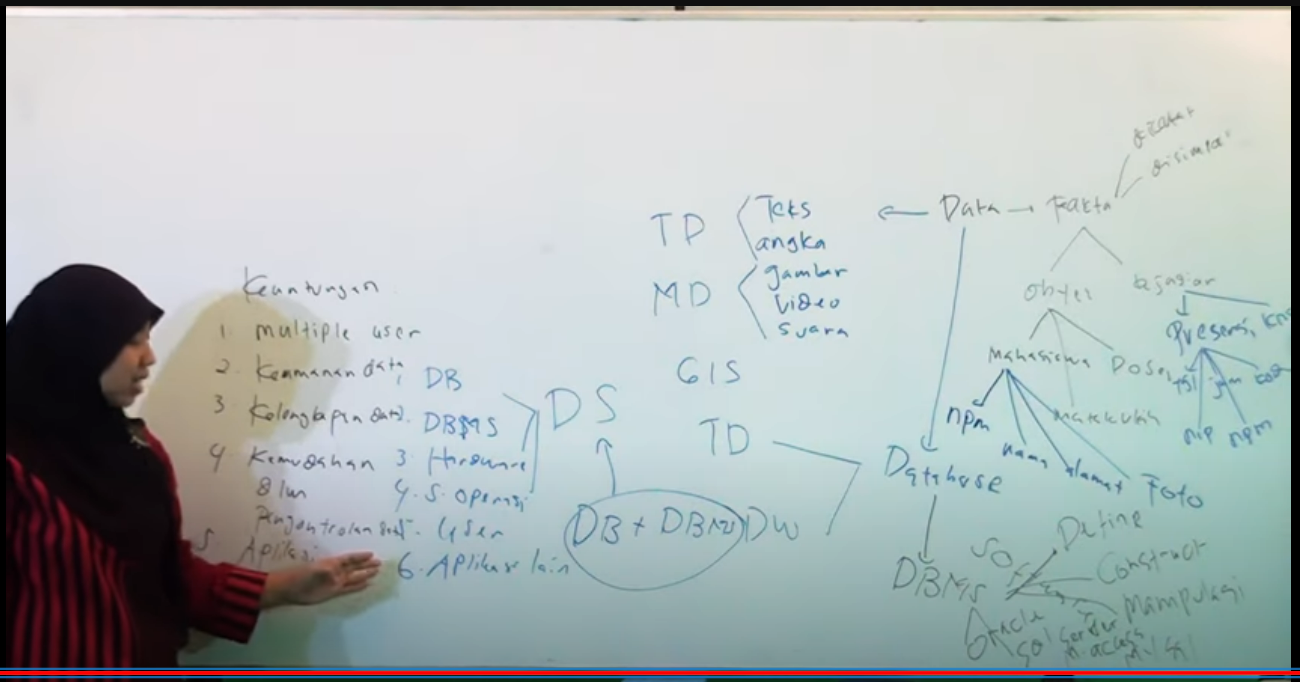 Keuntungan
1. multiple user
2. Keamanan data
3. Kelengkapan data
4. Kemudahan
dlm
Pengontrolan data
5. Aplikasi
DB
DBMS
3. Hardware
4. S. operasi
5. User
6. Aplikasi lain
DS
DB + DBMS
TD
Teks
angka
MD
gambar
Video
Suara
GIS
TD
DW
Data → Fakta
dicatat
disimpan
Obyek
kejadian
Mahasiswa
Dosen
Matakuliah
npm
nama
alamat
Foto
Presensi,
tgl jam
nip npm
Database
DBMS
SO
Define
Construct
Manipulasi
Oracle
Sql Server
M. acces
My Sql